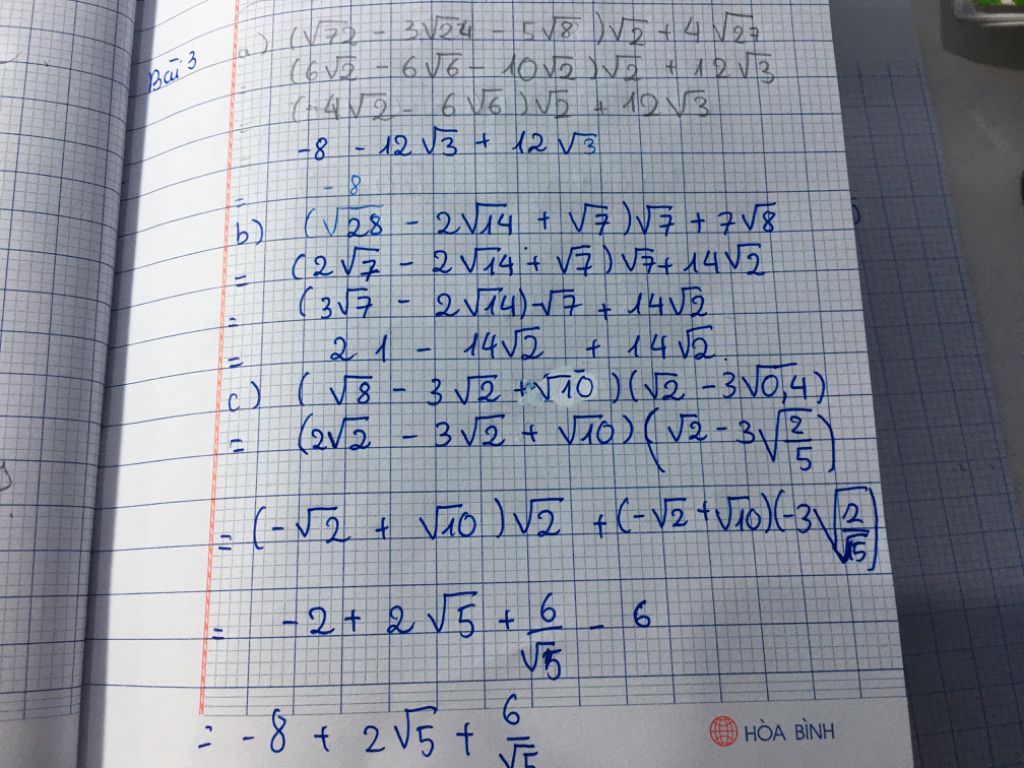 a) (√72 - 3√24 - 5√8)√2 + 4√27
Bài 3
(6√2 - 6√6 - 10√2)√2 + 12√3
(-4√2 - 6√6)√2 + 12√3
-8 - 12√3 + 12√3
= -8
b) (√28 - 2√14 + √7)√7 + 7√8
= (2√7 - 2√14 + √7)√7 + 14√2
= (3√7 - 2√14)√7 + 14√2
= 21 - 14√2 + 14√2.
c) (√8 - 3√2 + √10)(√2 - 3√0,4)
= (2√2 - 3√2 + √10)(√2 - 3√(2/5))
= (-√2 + √10)√2 + (-√2 + √10)(-3√(2/√5))
= -2 + 2√5 + 6/√5 - 6
= -8 + 2√5 + 6/√5
HÒA BÌNH